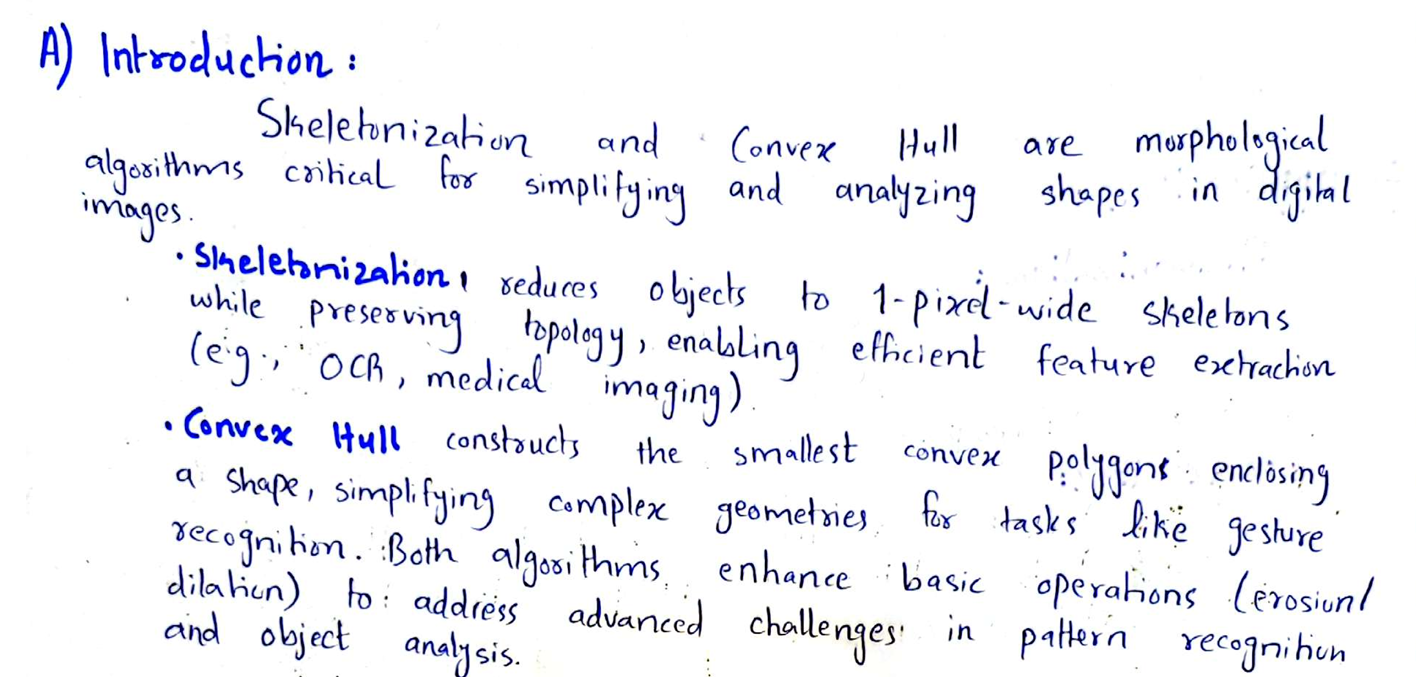 A) Introduction :
Skeletonization and Convex Hull are morphological
algorithms critical for simplifying and analyzing shapes in digital
images.
• Skeletonization reduces objects to 1-pixel-wide skeletons
while preserving topology, enabling efficient feature extraction
(e.g., OCR, medical imaging).
• Convex Hull constructs the smallest convex polygons enclosing
a shape, simplifying complex geometries for tasks like gesture
recognition. Both algorithms enhance basic operations (erosion/
dilation) to address advanced challenges in pattern recognition
and object analysis.